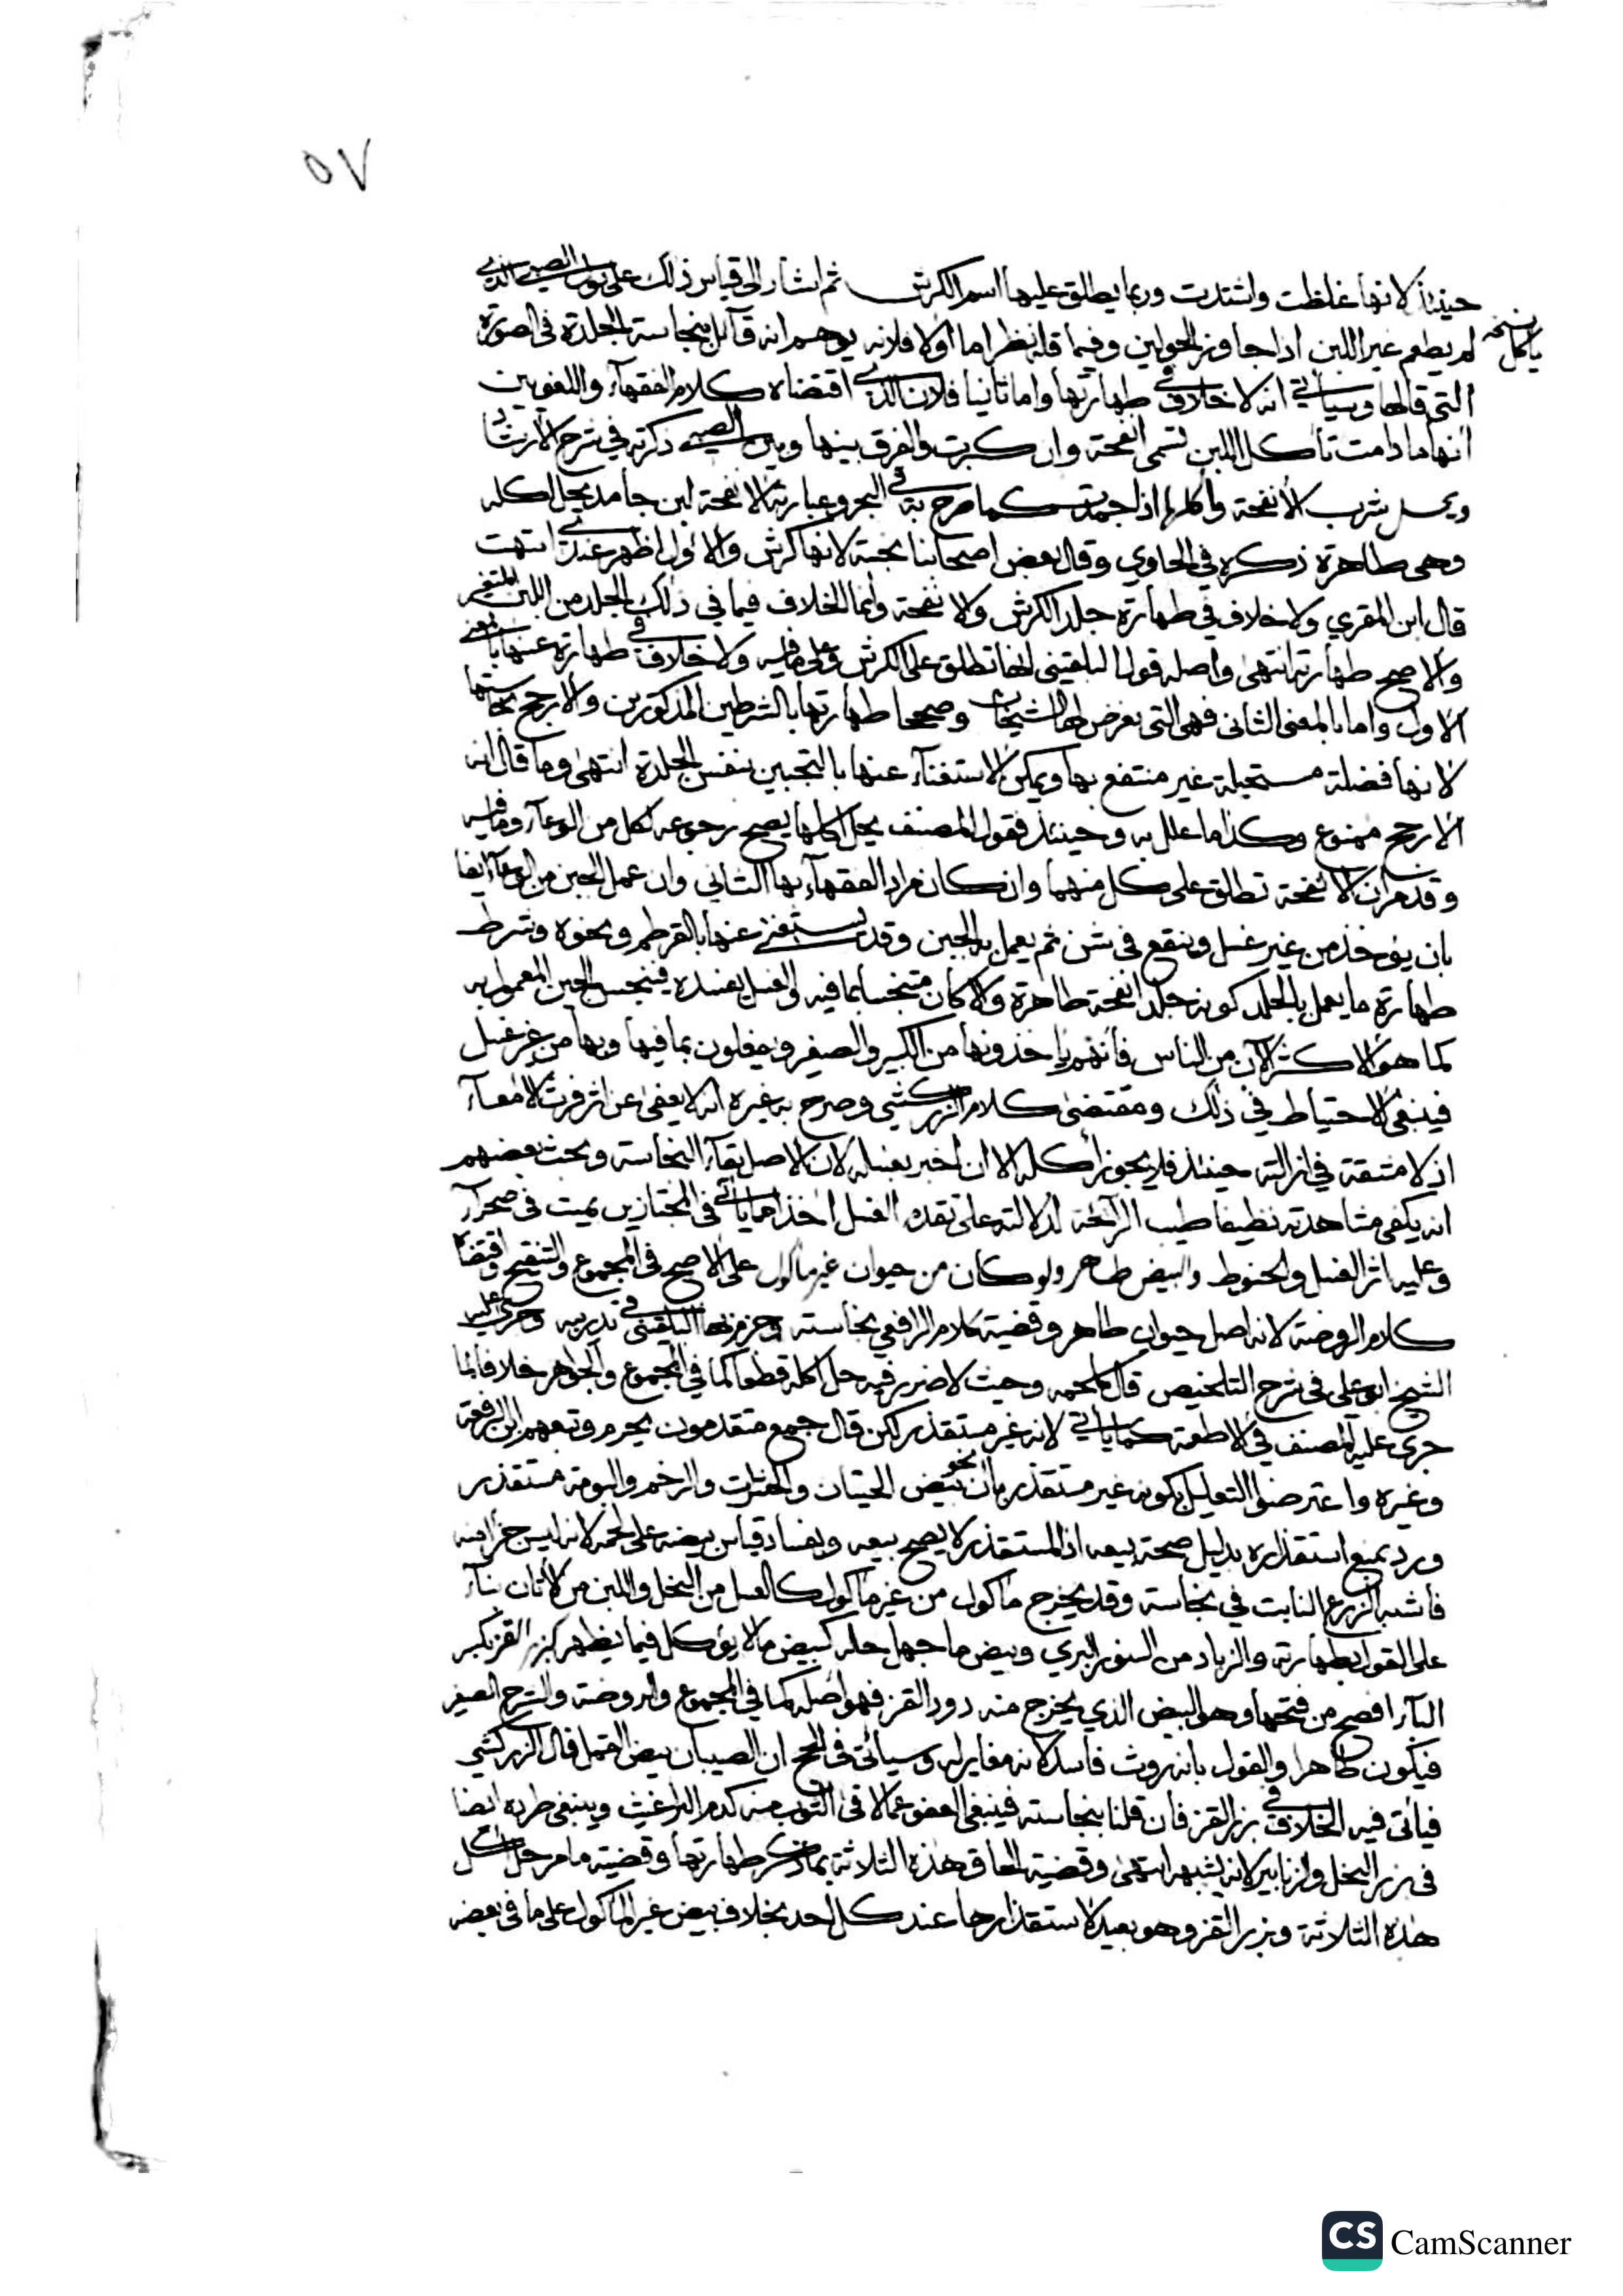 ٥٧
حينئذ لانها غلظت واشتدت وربما يطلق عليها اسم الكرش ثم اشار الى قياس ذلك على بول الصبي الذي
نسخه ياكل
لم يطعم غير اللبن اذا جاوز الحولين وفيما قاله نظر اما اولا فلانه يوهم انه قائل بنجاسة الجلدة في الصورة
التي قالها وسياتي انه لا خلاف في طهارتها واما ثانيا فلان الذي اقتضاه كلام الفقهاء واللغويين
انها ما دامت تاكل اللبن تسمى انفحة وان كبرت والفرق بينها وبين الصبي ذكرته في شرح الارشاد
ويحل شرب الانفحة واكلها اذا جمدت كما صرح به في البحر وعبارته الانفحة لبن جامد يحل اكله
وهي طاهرة ذكره في الحاوي وقال بعض اصحابنا نجسة لانها كرش والاول اظهر عندي انتهت
قال ابن المقري ولا خلاف في طهارة جلد الكرش والانفحة وانما الخلاف فيما في ذلك الجلد من اللبن المتغير
والاصح طهارته انتهى واصله قول البلقيني انها تطلق على الكرش وعلى ما فيه ولا خلاف في طهارة عينها بالمعنى
الاول واما بالمعنى الثاني فهي التي تعرض لها الشيخان وصححا طهارتها بالشرطين المذكورين والارجح نجاستها
لانها فضلة مستحيلة غير منتفع بها ويمكن الاستغناء عنها بالتجبين بنفس الجلدة انتهى وما قال انه
الارجح ممنوع وكذا ما علل به وحينئذ فقول المصنف يحل اكلها يصح رجوعه لكل من الوعاء وما فيه
وقد مر ان الانفحة تطلق على كل منهما وان كان مراد الفقهاء بها الثاني وان عمل الجبن من الوعاء ايضا
بان يؤخذ من غير غسل وينقع في شن ثم يعمل به الجبن وقد يستغنى عنها بالقرطم ونحوه وشرط
طهارة ما يعمل بالجلد كونه جلد انفحة طاهرة والا كان متنجسا بما فيه والغسل يفسده فينجس الجبن المعمول به
كما هو الاكثر الآن من الناس فانهم ياخذونها من الكبير والصغير ويفعلون بما فيها وبها من غير غسل
فينبغي الاحتياط في ذلك ومقتضى كلام الزركشي وصرح به غيره انه لا يعفى عن اثر فرث الامعاء
اذ لا مشقة في ازالته حينئذ فلا يجوز اكله الا ان اخبر بغسله لان الاصل بقاء النجاسة وبحث بعضهم
انه يكفي مشاهدته نظيفا طيب الرائحة لدلالته على تقدم الغسل اخذا مما ياتي في المجتازين بميت في صحراء
وعليه اثر الغسل والحنوط والبيض طاهر ولو كان من حيوان غير ماكول على الاصح في المجموع والتنقيح واقتضاه
كلام الروضة لانه اصل حيوان طاهر وقضية كلام الرافعي نجاسته وجزم بها البلقيني في تدريبه وجرى عليه
الشيخ ابو علي في شرح التلخيص قال كلحمه وحيث لا ضرر فيه حل اكله قطعا كما في المجموع والجواهر خلافا لما
جرى عليه المصنف في الاطعمة كما ياتي لانه غير مستقذر لكن قال جمع متقدمون يحرم وتبعهم ابن الرفعة
وغيره واعترضوا التعليل بكونه غير مستقذر بان نحو بيض الحيتان والحشرات والرخم والبومة مستقذر
ورد بمنع استقذاره بدليل صحة بيعه اذ المستقذر لا يصح بيعه وبفساد قياس بيضه على لحمه لانه ليس جزأ منه
فاشبه الزرع النابت في نجاسة وقد يخرج ماكول من غير ماكول كالعسل من النحل واللبن من الاتان بناء
على القول بطهارته والزباد من السنور البري وبيض ما جهل حله كبيض ما لا يؤكل فيما يظهر كبزر القز بكسر
الباء افصح من فتحها وهو البيض الذي يخرج منه دود القز فهو اصله كما في المجموع والروضة والشرح الصغير
فيكون طاهرا والقول بانه روث فاسد لانه مغاير له وسياتي في الحج ان الصيبان بيض القمل قال الزركشي
فياتي فيه الخلاف في بزر القز فان قلنا بنجاسته فينبغي العفو عما لاقى الثوب منه كدم البراغيث وينبغي طرده ايضا
في بزر النحل والزنابير لانه يشبهه انتهى وقضية الحاق هذه الثلاثة بما ذكر طهارتها وقضية ما مر حل اكل
هذه الثلاثة وبزر القز وهو بعيد لاستقذارها عند كل احد بخلاف بيض غير الماكول على ما في بعضه
CS CamScanner